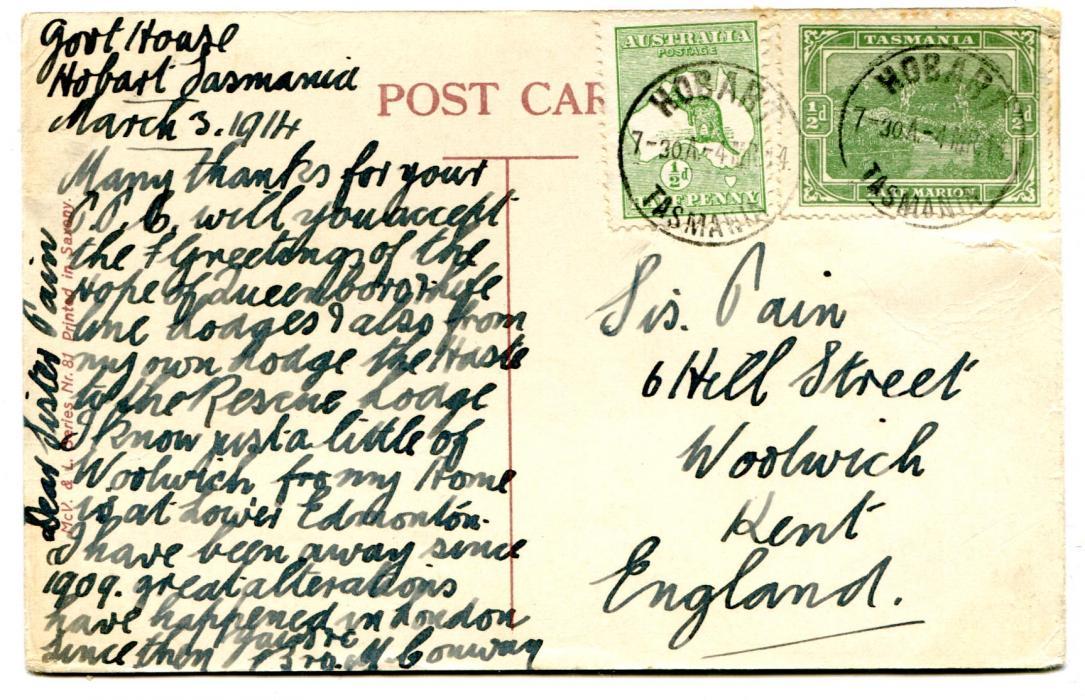 Govt House
Hobart Tasmania
March 3. 1914
POST CAR
Dear Sister Pain
Many thanks for your
P.P.C. will you accept
the Greetings of the
Hope of Queenboro & Life
line Lodges & also from
my own Lodge the Haste
to the Rescue Lodge
I know just a little of
Woolwich for my Home
is at Lower Edmonton.
I have been away since
1909. great alterations
have happened in London
since then
Bro. M. Conway
McV. & L. Series Nr. 81 Printed in Saxony
AUSTRALIA
POSTAGE
½d
HALFPENNY
HOBART
7-30A-4MR14
TASMANIA
TASMANIA
½d
½d
MT MARION
HOBART
7-30A-4MR14
TASMANIA
Sis. Pain
6 Hill Street
Woolwich
Kent
England.